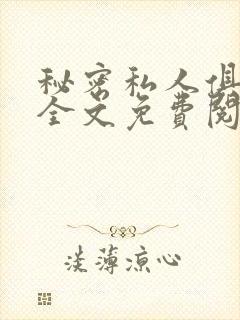 秘密私人俱
全文免費閱
淡薄涼心